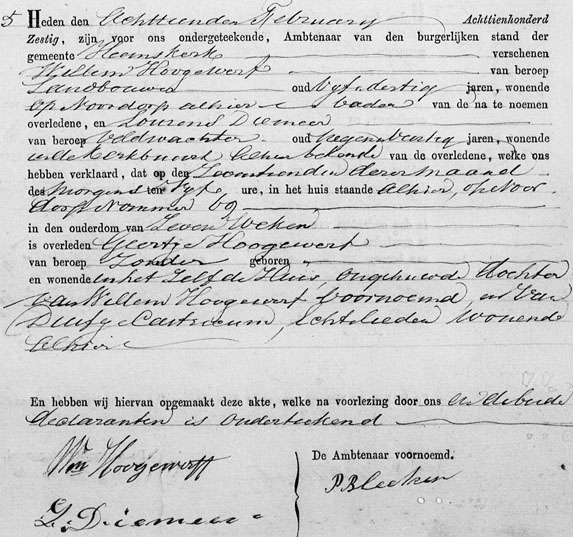 5 Heden den Achttienden February Achttienhonderd
Zestig, zijn voor ons ondergeteekende, Ambtenaar van den burgerlijken stand der
gemeente Heemskerk verschenen
Willem Hoogewerf van beroep
Landbouwer oud Vijfendertig jaren, wonende
op Noordorp alhier Vader van de na te noemen
overledene, en Lourens Diemeer
van beroep Veldwachter oud Negenenveertig jaren, wonende
in de Kerkbuurt alhier bekende van de overledene, welke ons
hebben verklaard, dat op den Zeventienden dezer maand
des Morgens ten Vijf ure, in het huis staande alhier, op Noor
dorp Nommer 69
in den ouderdom van Zeven Weken
is overleden Geertje Hoogewerf
van beroep Zonder geboren
en wonende in het Zelfde Huis, ongehuwde dochter
van Willem Hoogewerf voornoemd, en van
Duifje Castricum, Echtelieden wonende
alhier
En hebben wij hiervan opgemaakt deze akte, welke na voorlezing door ons en de beide
declaranten is onderteekend
Wm Hoogewerff
De Ambtenaar voornoemd.
L. Diemeer